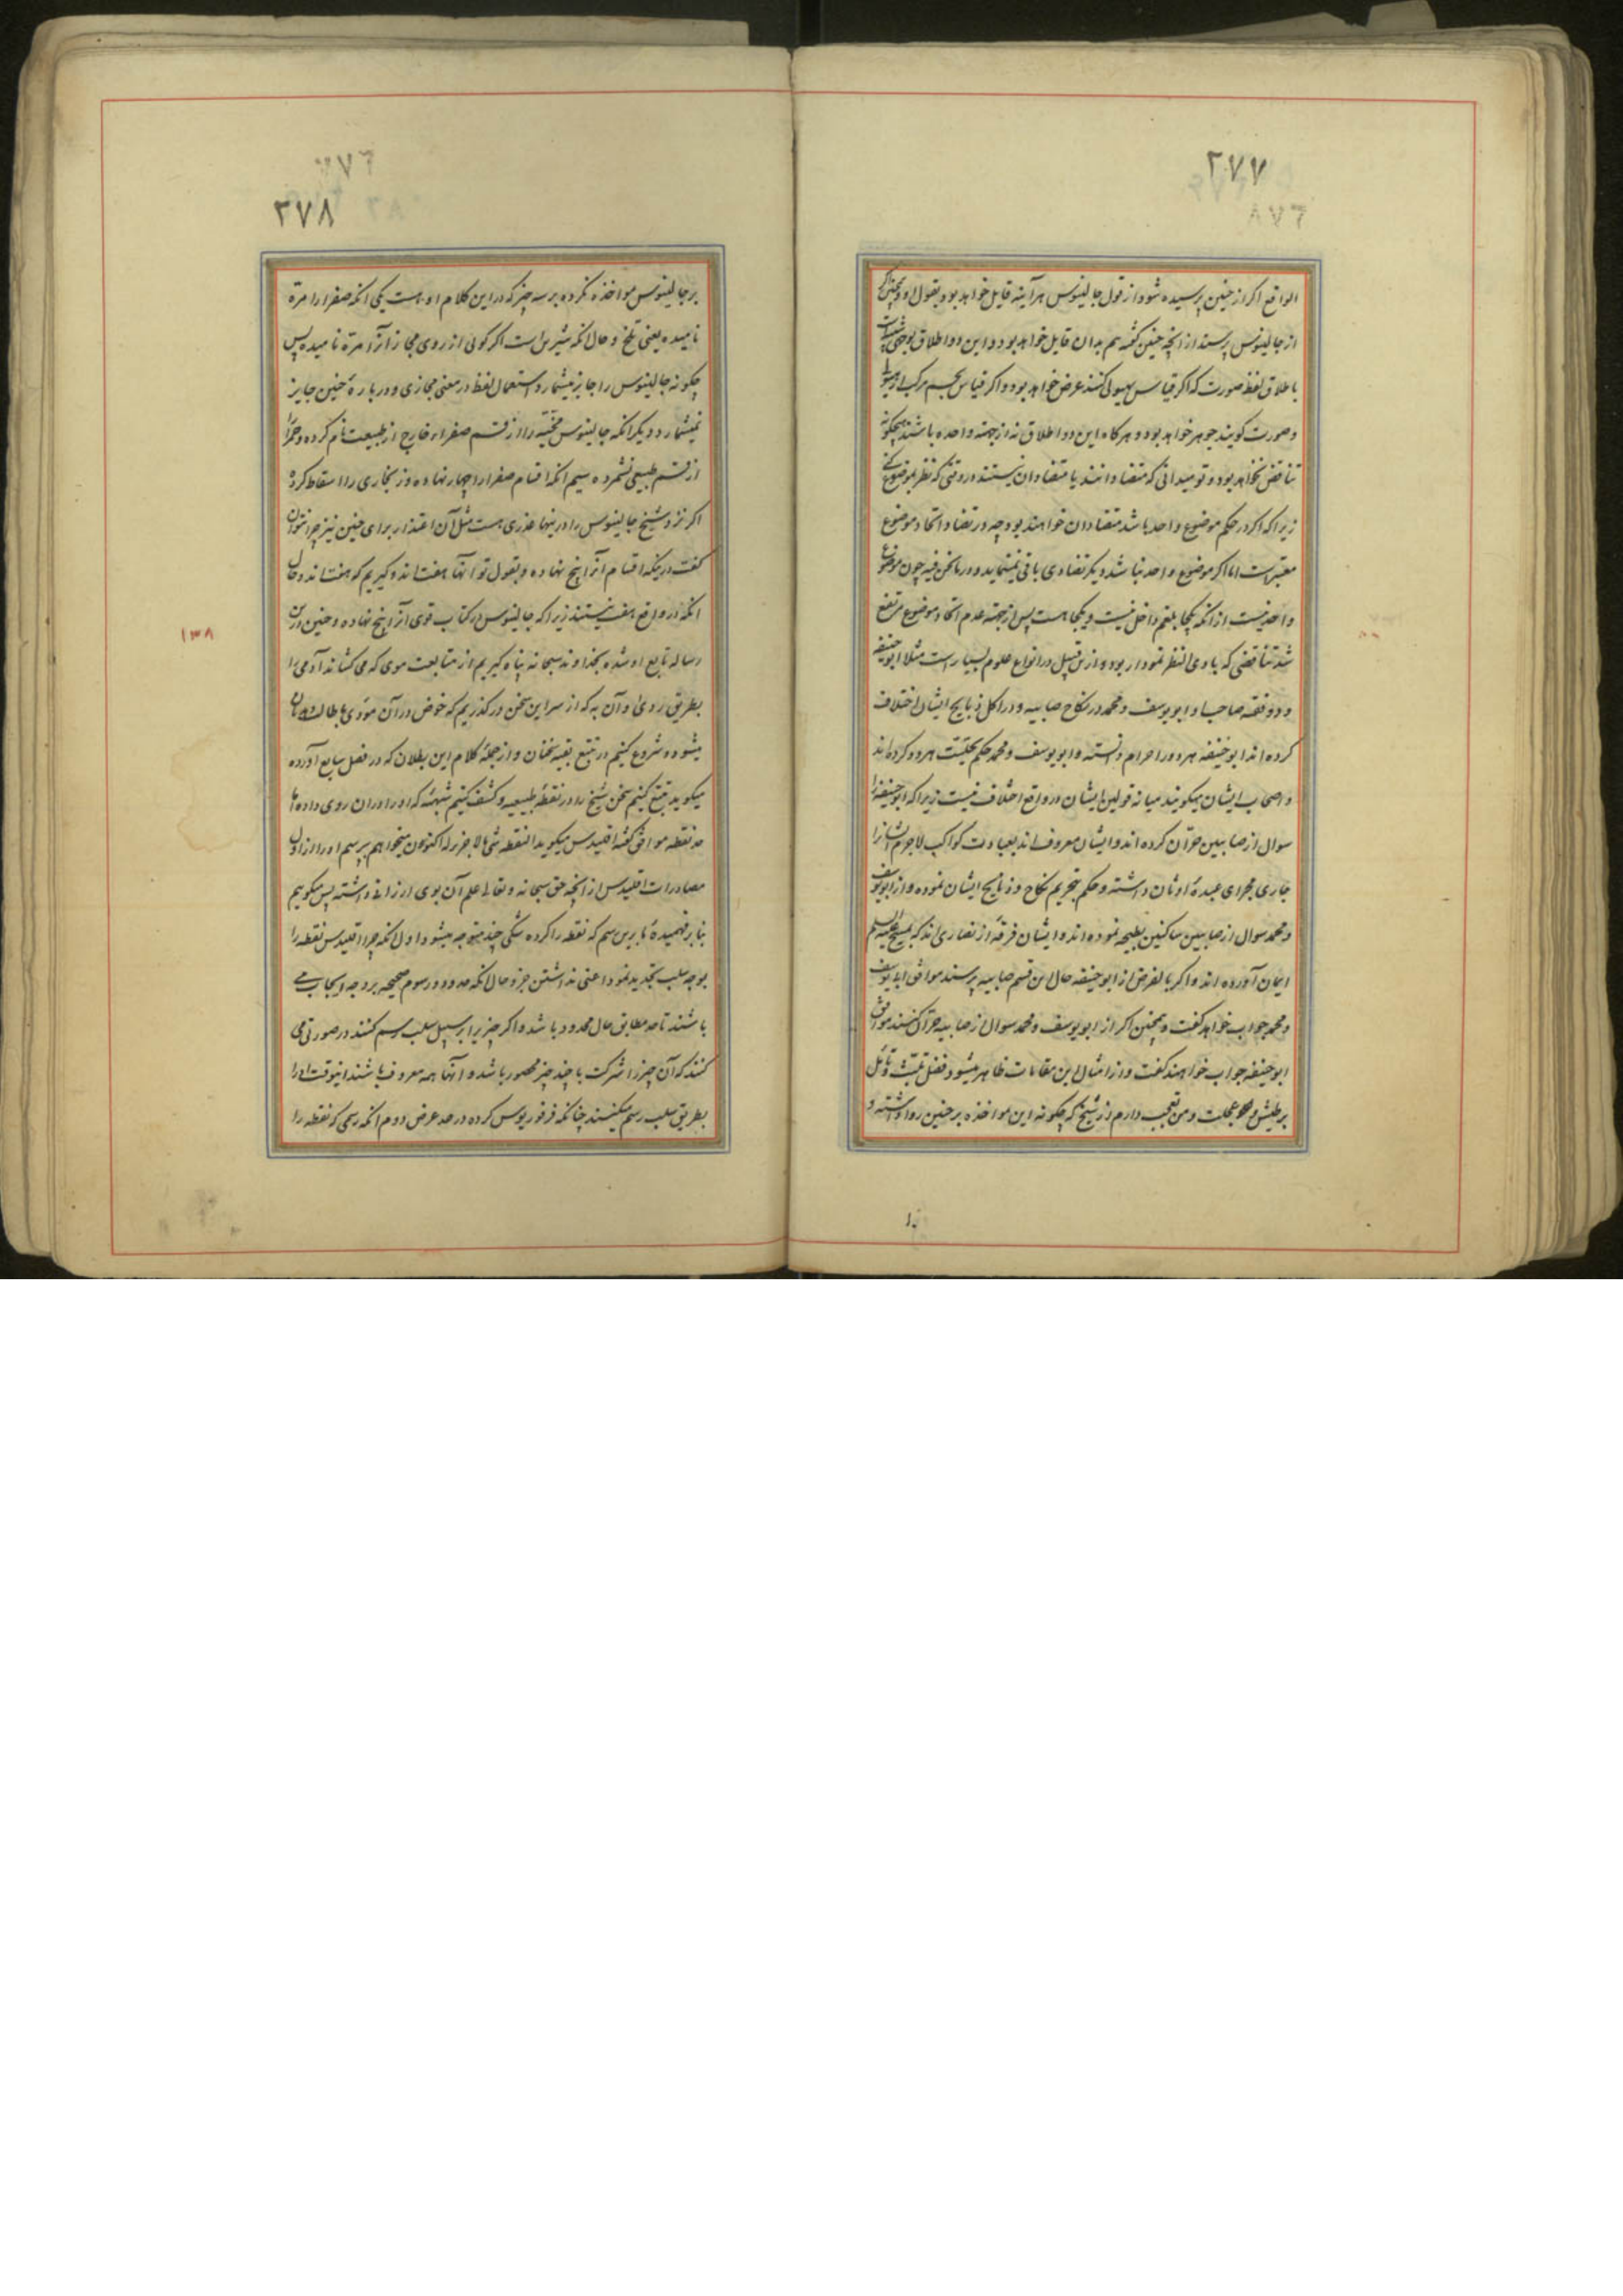 ۲۷۷
الواقع اکر از حنین پرسیده شود از قول جالینوس هرآینه قایل خواهد بود بقول او و همچنین اکر
از جالینوس پرسند از انچه حنین کفته هم بدان قایل خواهد بود و این دو اطلاق بوجهی
باطلاق لفظ صورت که اکر قیاس بهیولی کنند عرض خواهد بود و اکر قیاس بجسم مرکب از هیولی
و صورت کویند جوهر خواهد بود و هرکاه این دو اطلاق نه از جهته واحده باشند هیچکونه
تناقض نخواهد بود و تو میدانی که متضادانند یا متضادان نیستند در وقتی که نظر بموضوع کنی
زیرا که اکر در حکم موضوع واحد باشد متضادان خواهند بود چه در تضاد اتحاد موضوع
معتبر است اما اکر موضوع واحد نباشد دیکر تضادی باقی نمیماند و در ما نحن فیه چون موضوع
واحد نیست از آنکه یکجا بلغم داخل نیست و یکجا هست پس از جهته عدم اتحاد موضوع مرتفع
شد تناقضی که بادی النظر نمودار بود و ازین قبیل در انواع علوم بسیار است مثلا ابو حنیفه
و دو فقیه صاحب او ابو یوسف و محمد در نکاح صابیه و در اکل ذبایح ایشان اختلاف
کرده اند ابو حنیفه هر دو را حرام دانسته و ابو یوسف و محمد حکم بحلیّت هر دو کرده اند
و اصحاب ایشان میکویند میانه قولین ایشان در واقع اختلاف نیست زیرا که ابو حنیفه را
سوال از صابیین حرّان کرده اند و ایشان معروف اند بعبادت کواکب لاجرم ایشانرا
جاری مجرای عبدهٔ اوثان داشته و حکم بتحریم نکاح و ذبایح ایشان نموده و از ابو یوسف
و محمد سوال از صابیین ساکنین بطیحه نموده اند و ایشان فرقهٔ از نصاری اند که بمسیح علیه السلم
ایمان آورده اند و اکر بالفرض از ابو حنیفه حال این قسم صابیه پرسند موافق ابو یوسف
و محمد جواب خواهد کفت و همچنین اکر از ابو یوسف و محمد سوال از صابیه حرّان کنند موافق
ابو حنیفه جواب خواهند کفت و از امثال این مقامات ظاهر میشود فضل تثبّت و تأمل
بر طیش و عجلت و من تعجب دارم از شیخ که چکونه این مواخذه بر حنین روا داشته و
۲۷۸
بر جالینوس مواخذه نکرده بر سه چیز که در این کلام او هست یکی انکه صفرا را مرّة
نامیده یعنی تلخ و حال انکه شیرین است اکر کوئی از روی مجاز آنرا مرّة نامیده پس
چکونه جالینوس را جایز میشمارد استعمال لفظ در معنی مجازی و در بارهٔ حنین جایز
نمیشمارد دیکر انکه جالینوس مخیّه را از قسم صفراء خارج از طبیعت نام کرده و حمرا را
از قسم طبیعی نشمرده سیم انکه اقسام صفرا را چهار نهاده و زنجاری را اسقاط کرده
اکر نزد شیخ جالینوس را در ینها عذری هست مثل آن اعتذار برای حنین نیز چرا نتوان
کفت در ینکه اقسام آنرا پنج نهاده و بقول تو آنها هفت اند و کیریم که هفت اند و حال
انکه در واقع هفت نیستند زیرا که جالینوس در کتاب قوی آنرا پنج نهاده و حنین درین
رساله تابع او شده بخداوند سبحانه پناه کیریم از متابعت هوی که می کشاند آدمی را
بطریق ردی و آن به که از سر این سخن در کذریم که خوض در آن مودی باطالت
میشود و شروع کنیم در تتبع بقیه سخنان و از جملهٔ کلام ابن بطلان که در فصل سابع آورده
میکوید تتبع کنیم سخن شیخ را در نقطهٔ طبیعیه و کشف کنیم شبههٔ که او را در ان روی داده اما
حد نقطه موافق کفته اقلیدس میکوید النقطه شئ لا جزء له اکنون میخواهم بپرسم او را از اول
مصادرات اقلیدس از انچه حق سبحانه و تعالی علم آن بوی ارزانی داشته پس میکوییم
بنا بر فهمیدهٔ ما برین رسم که نقطه را کرده شکی چند متوجه میشود اول انکه چرا اقلیدس نقطه را
بوجه سلب تحدید نمود اعنی نداشتن جزو حال انکه حدود و رسوم صحیحه بر وجه ایجاب می
باشند تا حد مطابق حال محدود باشد و اکر چیزیرا بر سبیل سلب رسم کنند در صورتی می
کنند که آن چیز را شرکت با چند چیز محصور باشد و آنها همه معروف باشند انوقت او را
بطریق سلب رسم میکنند چنانکه فرفوریوس کرده در حد عرض دوم انکه رسمی که نقطه را
۱۳۸